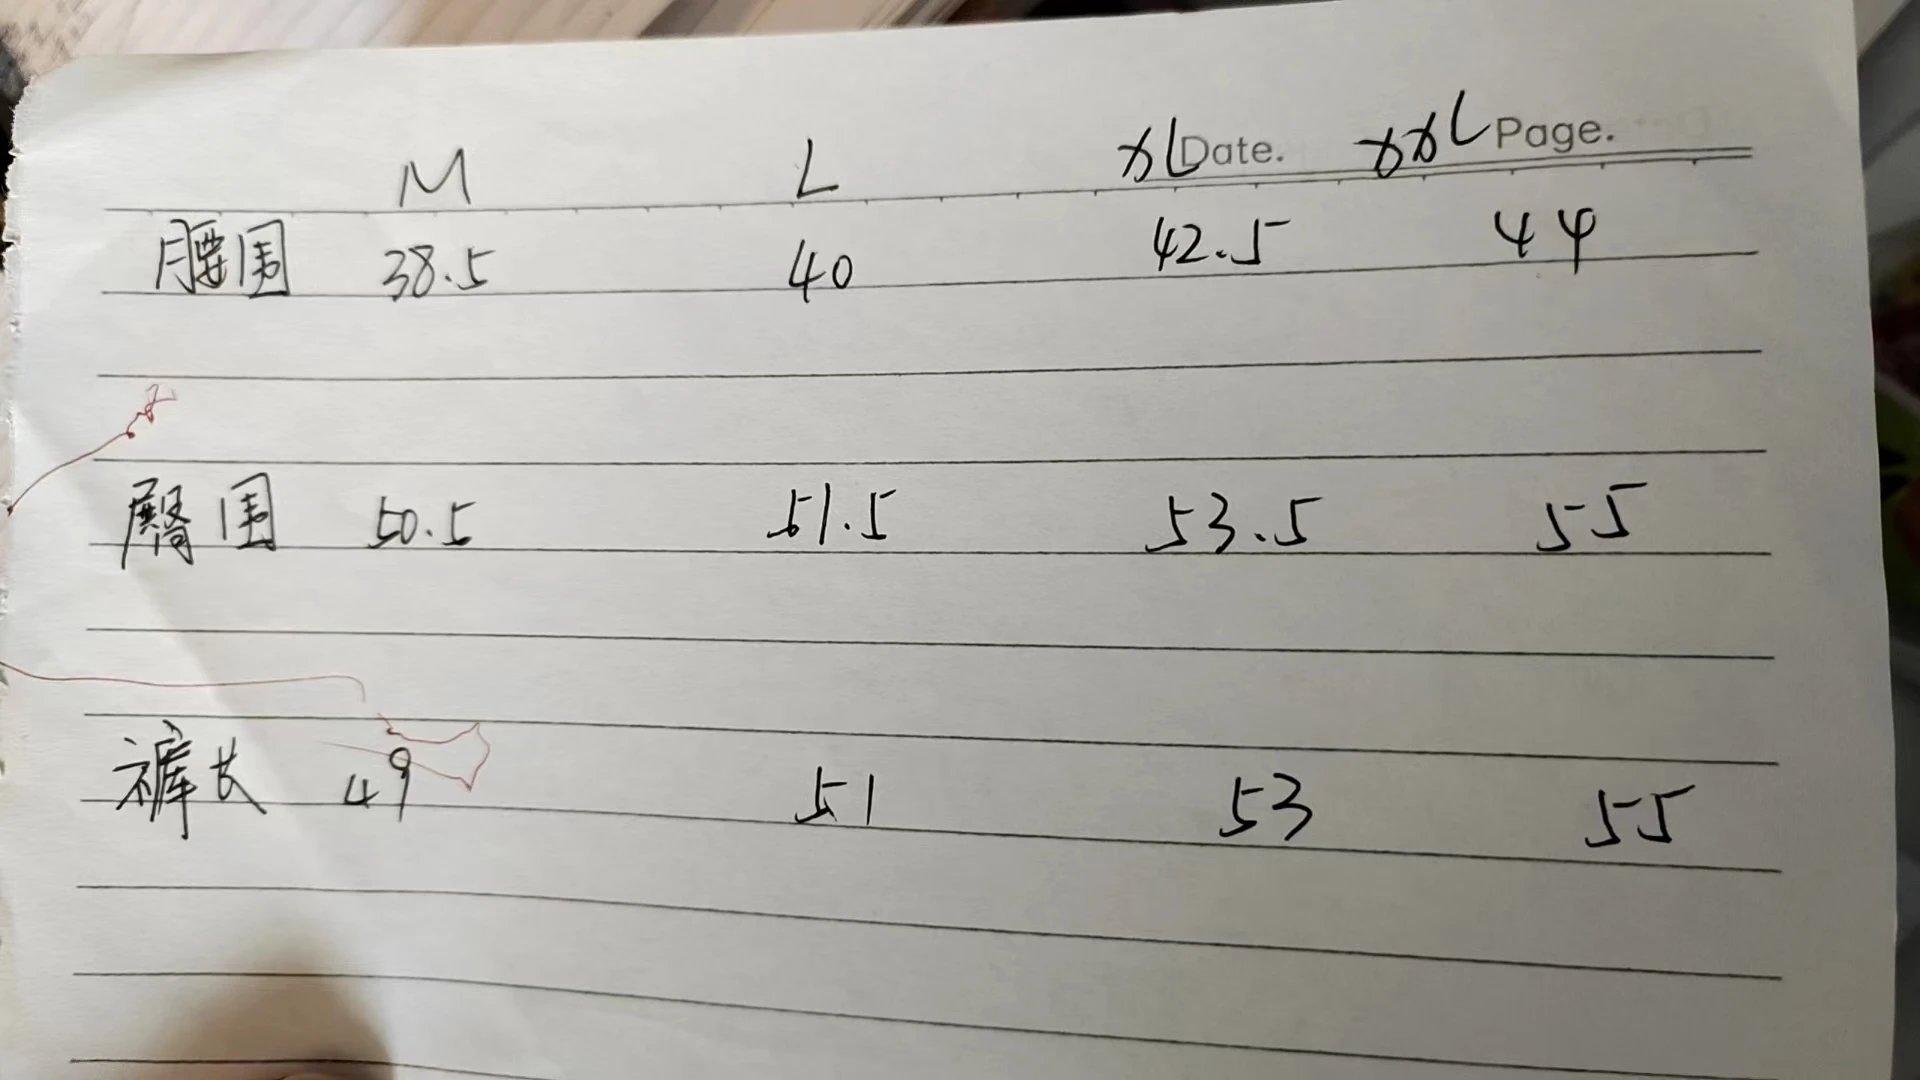 M L XL Date. XXL Page.
腰围 38.5 40 42.5 44
臀围 50.5 51.5 53.5 55
裤长 49 51 53 55